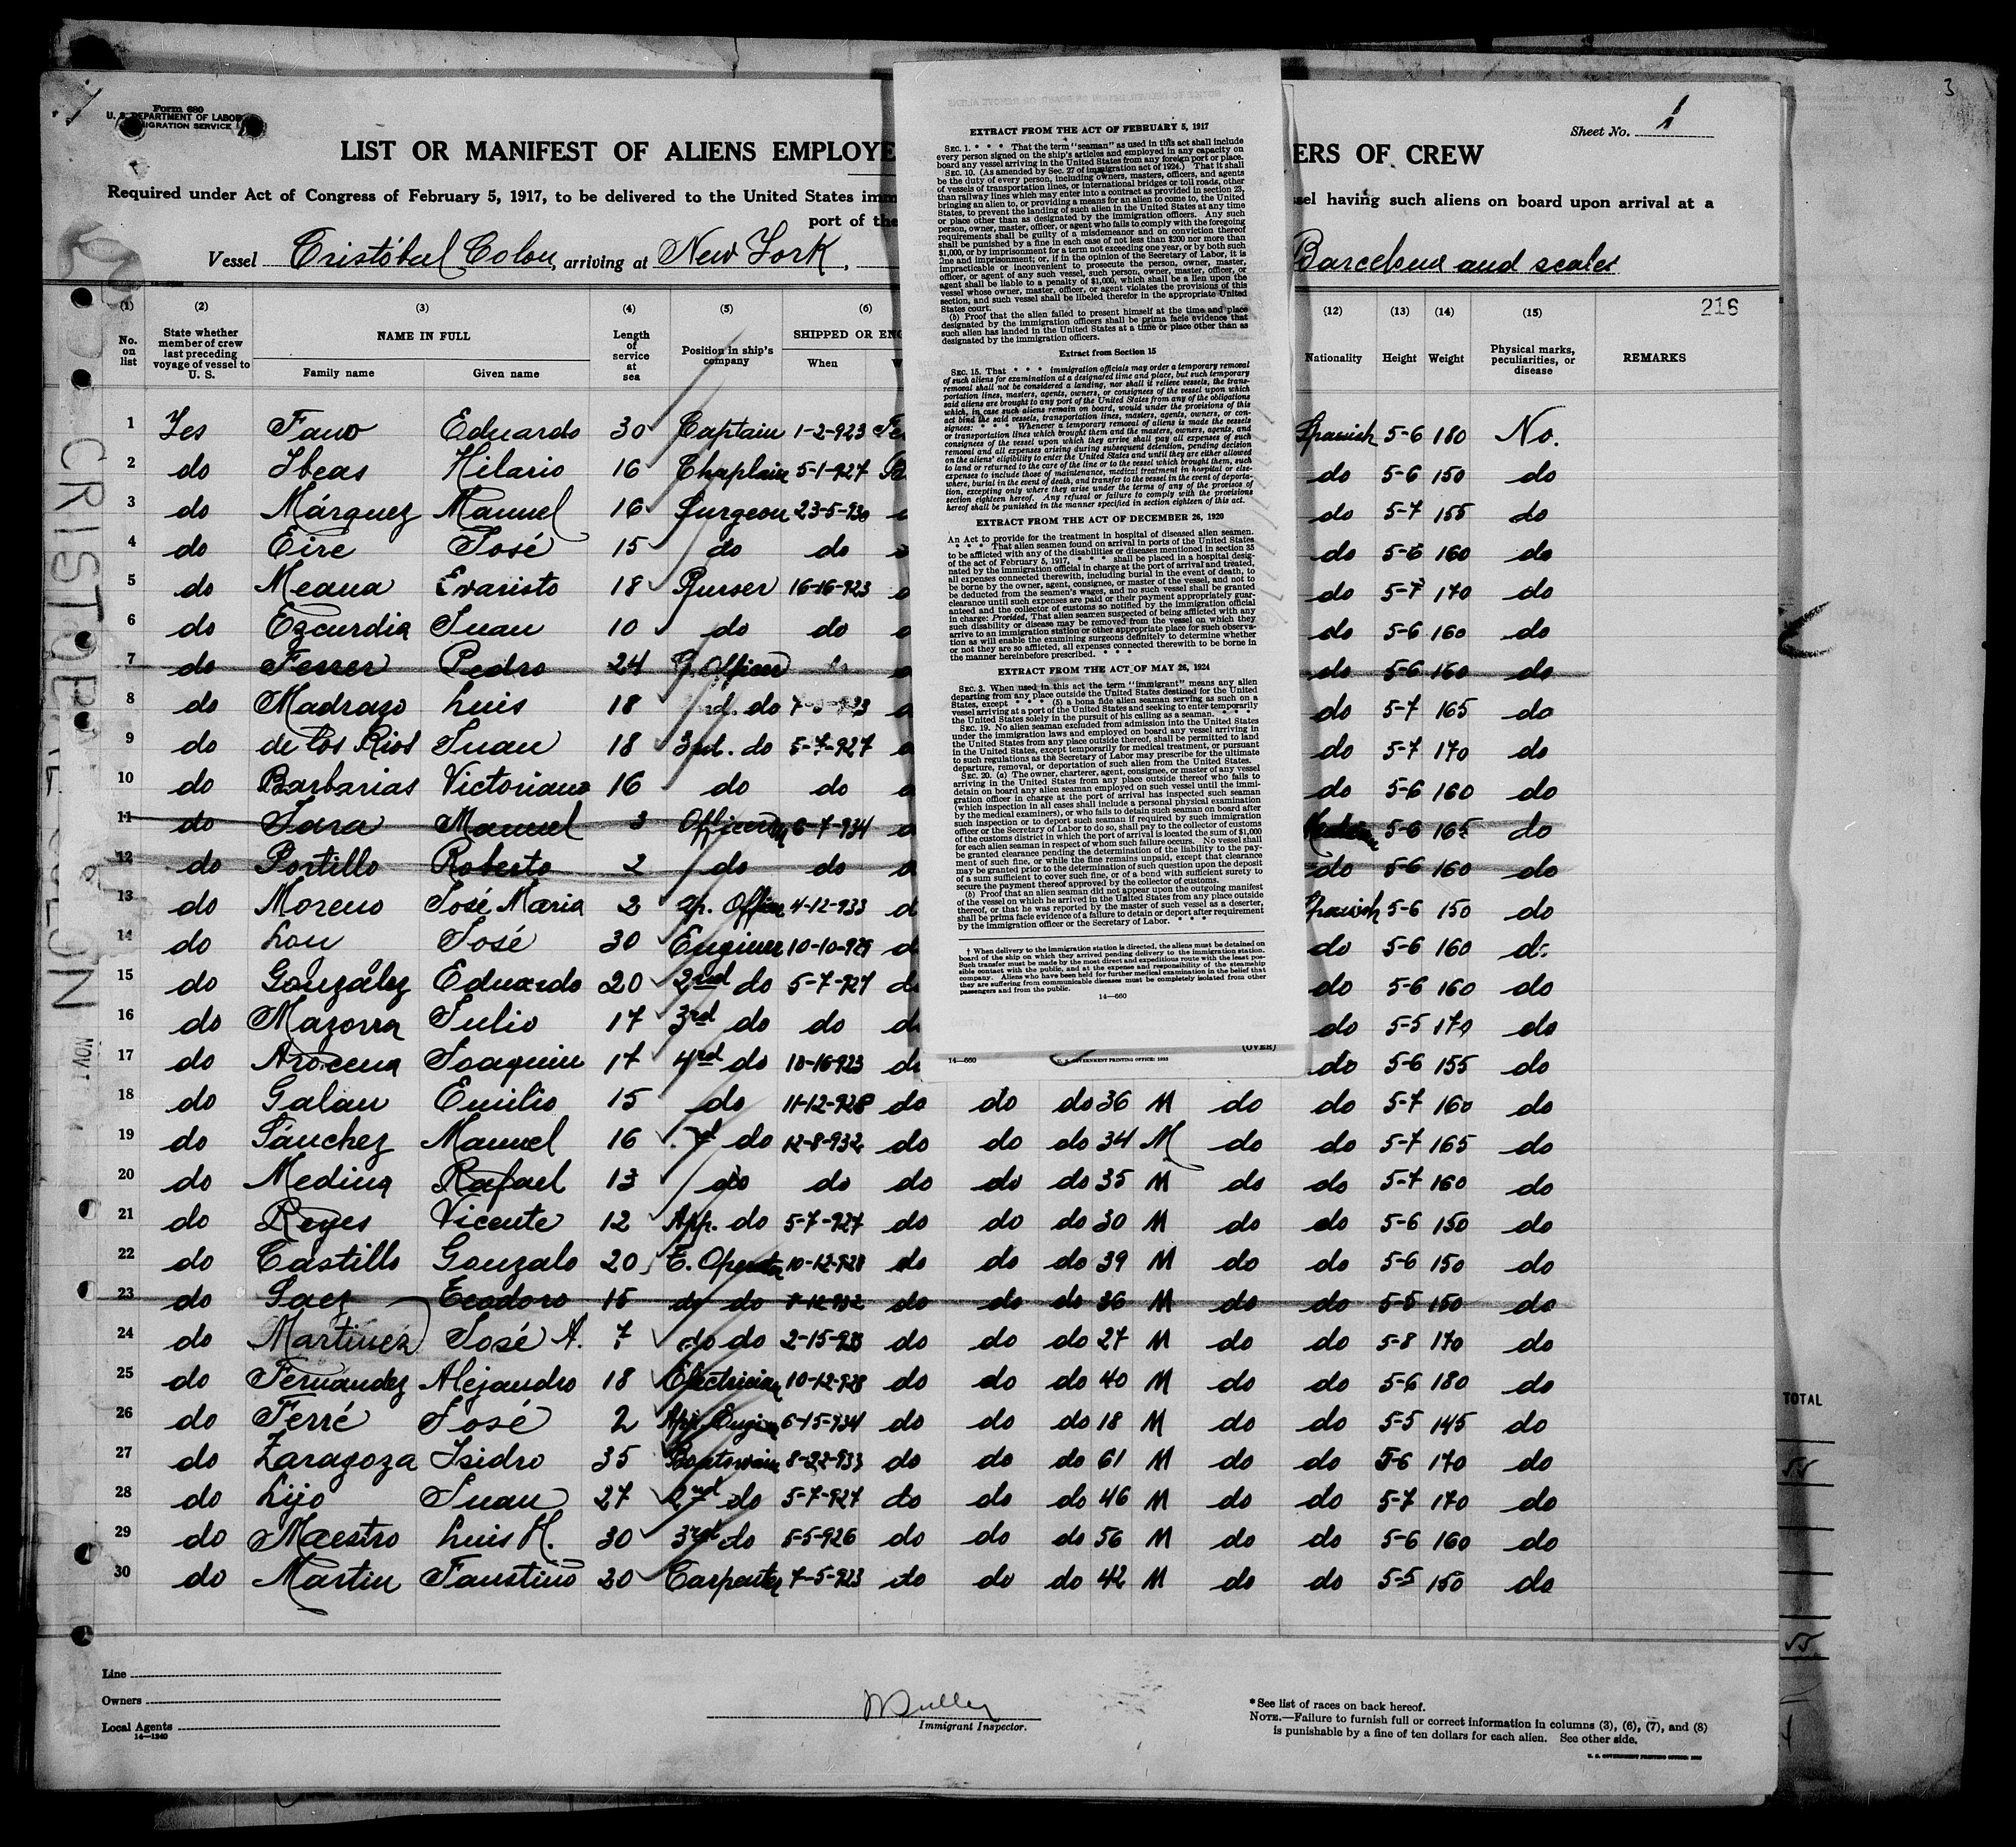 3
Form 680
U. S. DEPARTMENT OF LABOR
IMMIGRATION SERVICE
Sheet No. 1
LIST OR MANIFEST OF ALIENS EMPLOYE
ERS OF CREW
Required under Act of Congress of February 5, 1917, to be delivered to the United States imm
sel having such aliens on board upon arrival at a
port of the
Vessel Cristóbal Colon, arriving at New York,
Barcelona and scales
216
(1) (2) (3) (4) (5) (6) (12) (13) (14) (15)
No. on list
State whether member of crew last preceding voyage of vessel to U. S.
NAME IN FULL
Family name Given name
Length of service at sea
Position in ship's company
SHIPPED OR ENG
When
Nationality Height Weight
Physical marks, peculiarities, or disease
REMARKS
1 Yes Fano Eduardo 30 Captain 1-2-923 Spanish 5-6 180 No.
2 do Ibeas Hilario 16 Chaplain 5-1-927 do 5-6 150 do
3 do Márquez Manuel 16 Surgeon 23-5-930 do 5-7 155 do
4 do Eire José 15 do do do 5-6 160 do
5 do Meana Evaristo 18 Purser 16-16-923 do 5-7 170 do
6 do Ezcurdia Juan 10 do do do 5-6 160 do
7 do Ferrer Pedro 24 Officer do 5-6 160 do
8 do Madrazo Luis 18 do do 5-7 165 do
9 do de los Rios Juan 18 3rd. do 5-7-927 do 5-7 170 do
10 do Barbarias Victoriano 16 do do do 5-6 160 do
11 do Jara Manuel 3 6-7-934 5-6 165 do
12 do Portillo Roberto 2 do do do 5-6 160 do
13 do Moreno José Maria 2 Ap. Officer 4-12-933 d Spanish 5-6 150 do
14 do Lou José 30 Engineer 10-10-929 d do 5-6 160 do
15 do González Eduardo 20 2nd do 5-7-927 d do 5-6 160 do
16 do Mazorra Julio 17 3rd do do d do 5-5 170 do
17 do Arocena Joaquin 17 4rd do 10-16-923 d do 5-6 155 do
18 do Galan Emilio 15 do 11-12-928 do do do 36 M do do 5-7 160 do
19 do Sánchez Manuel 16 do 12-8-932 do do do 34 M do do 5-7 165 do
20 do Medina Rafael 13 do do do do do 35 M do do 5-7 160 do
21 do Reyes Vicente 12 App. do 5-7-927 do do do 30 M do do 5-6 150 do
22 do Castillo Gonzalo 20 E. Operator 10-12-928 do do do 39 M do do 5-6 150 do
23 do Saez Teodoro 15 do do do do do 36 M do do 5-5 150 do
24 do Martinez José A. 7 do do 2-15-933 do do do 27 M do do 5-8 170 do
25 do Fernandez Alejandro 18 Electrician 10-12-928 do do do 40 M do do 5-6 180 do
26 do Ferré José 2 App. Engin 6-15-934 do do do 18 M do do 5-5 145 do
27 do Zaragoza Isidro 35 Boatswain 8-22-933 do do do 61 M do do 5-6 170 do
28 do Lijo Juan 27 2nd do 5-7-927 do do do 46 M do do 5-7 170 do
29 do Maestro Luis M. 30 3rd do 5-5-926 do do do 56 M do do 5-6 160 do
30 do Martin Faustino 20 Carpenter 7-5-923 do do do 42 M do do 5-5 150 do
EXTRACT FROM THE ACT OF FEBRUARY 5, 1917
SEC. 1. * * * That the term "seaman" as used in this act shall include
every person signed on the ship's articles and employed in any capacity on
board any vessel arriving in the United States from any foreign port or place.
SEC. 10. (As amended by Sec. 27 of immigration act of 1924.) That it shall
be the duty of every person, including owners, masters, officers, and agents
of vessels of transportation lines, or international bridges or toll roads, other
than railway lines which may enter into a contract as provided in section 23,
bringing an alien to, or providing a means for an alien to come to, the United
States, to prevent the landing of such alien in the United States at any time
or place other than as designated by the immigration officers. Any such
person, owner, master, officer, or agent who fails to comply with the foregoing
requirements shall be guilty of a misdemeanor and on conviction thereof
shall be punished by a fine in each case of not less than $200 nor more than
$1,000, or by imprisonment for a term not exceeding one year, or by both such
fine and imprisonment; or, if in the opinion of the Secretary of Labor, it is
impracticable or inconvenient to prosecute the person, owner, master,
officer, or agent of any such vessel, such person, owner, master, officer, or
agent shall be liable to a penalty of $1,000, which shall be a lien upon the
vessel whose owner, master, officer, or agent violates the provisions of this
section, and such vessel shall be libeled therefor in the appropriate United
States court.
(b) Proof that the alien failed to present himself at the time and place
designated by the immigration officers shall be prima facie evidence that
such alien has landed in the United States at a time or place other than as
designated by the immigration officers.
Extract from Section 15
SEC. 15. That * * * immigration officials may order a temporary removal
of such aliens for examination at a designated time and place, but such temporary
removal shall not be considered a landing, nor shall it relieve vessels, the trans-
portation lines, masters, agents, owners, or consignees of the vessel upon which
said aliens are brought to any port of the United States from any of the obligations
which, in case such aliens remain on board, would under the provisions of this
act bind the said vessels, transportation lines, masters, agents, owners, or con-
signees: * * * Whenever a temporary removal of aliens is made the vessels
or transportation lines which brought them and the masters, owners, agents, and
consignees of the vessel upon which they arrive shall pay all expenses of such
removal and all expenses arising during subsequent detention, pending decision
on the aliens' eligibility to enter the United States and until they are either allowed
to land or returned to the care of the line or to the vessel which brought them, such
expenses to include those of maintenance, medical treatment in hospital or else-
where, burial in the event of death, and transfer to the vessel in the event of deporta-
tion, excepting only where they arise under the terms of any of the provisos of
section eighteen hereof. Any refusal or failure to comply with the provisions
hereof shall be punished in the manner specified in section eighteen of this act.
EXTRACT FROM THE ACT OF DECEMBER 26, 1920
An Act to provide for the treatment in hospital of diseased alien seamen.
* * * That alien seamen found on arrival in ports of the United States
to be afflicted with any of the disabilities or diseases mentioned in section 35
of the act of February 5, 1917, * * * shall be placed in a hospital desig-
nated by the immigration official in charge at the port of arrival and treated,
all expenses connected therewith, including burial in the event of death, to
be borne by the owner, agent, consignee, or master of the vessel, and not to
be deducted from the seamen's wages, and no such vessel shall be granted
clearance until such expenses are paid or their payment appropriately guar-
anteed and the collector of customs so notified by the immigration official
in charge: Provided, That alien seamen suspected of being afflicted with any
such disability or disease may be removed from the vessel on which they
arrive to an immigration station or other appropriate place for such observa-
tion as will enable the examining surgeons definitely to determine whether
or not they are so afflicted, all expenses connected therewith to be borne in
the manner hereinbefore prescribed. * * *
EXTRACT FROM THE ACT OF MAY 26, 1924
SEC. 3. When used in this act the term "immigrant" means any alien
departing from any place outside the United States destined for the United
States, except * * * (5) a bona fide alien seaman serving as such on a
vessel arriving at a port of the United States and seeking to enter temporarily
the United States solely in the pursuit of his calling as a seaman. * * *
SEC. 19. No alien seaman excluded from admission into the United States
under the immigration laws and employed on board any vessel arriving in
the United States from any place outside thereof, shall be permitted to land
in the United States, except temporarily for medical treatment, or pursuant
to such regulations as the Secretary of Labor may prescribe for the ultimate
departure, removal, or deportation of such alien from the United States.
SEC. 20. (a) The owner, charterer, agent, consignee, or master of any vessel
arriving in the United States from any place outside thereof who fails to
detain on board any alien seaman employed on such vessel until the immi-
gration officer in charge at the port of arrival has inspected such seaman
(which inspection in all cases shall include a personal physical examination
by the medical examiners), or who fails to detain such seaman on board after
such inspection or to deport such seaman if required by such immigration
officer or the Secretary of Labor to do so, shall pay to the collector of customs
of the customs district in which the port of arrival is located the sum of $1,000
for each alien seaman in respect of whom such failure occurs. No vessel shall
be granted clearance pending the determination of the liability to the pay-
ment of such fine, or while the fine remains unpaid, except that clearance
may be granted prior to the determination of such question upon the deposit
of a sum sufficient to cover such fine, or of a bond with sufficient surety to
secure the payment thereof approved by the collector of customs.
(b) Proof that an alien seaman did not appear upon the outgoing manifest
of the vessel on which he arrived in the United States from any place outside
thereof, or that he was reported by the master of such vessel as a deserter,
shall be prima facie evidence of a failure to detain or deport after requirement
by the immigration officer or the Secretary of Labor. * * *
† When delivery to the immigration station is directed, the aliens must be detained on
board of the ship on which they arrived pending delivery to the immigration station.
Such transfer must be made by the most direct and expeditious route with the least pos-
sible contact with the public, and at the expense and responsibility of the steamship
company. Aliens who have been held for further medical examination in the belief that
they are suffering from communicable diseases must be completely isolated from other
passengers and from the public.
14—660
14—660
U. S. GOVERNMENT PRINTING OFFICE: 1933
(OVER)
TOTAL
55
55
Line
Owners
Local Agents
14—1240
Immigrant Inspector.
*See list of races on back hereof.
NOTE.—Failure to furnish full or correct information in columns (3), (6), (7), and (8)
is punishable by a fine of ten dollars for each alien. See other side.